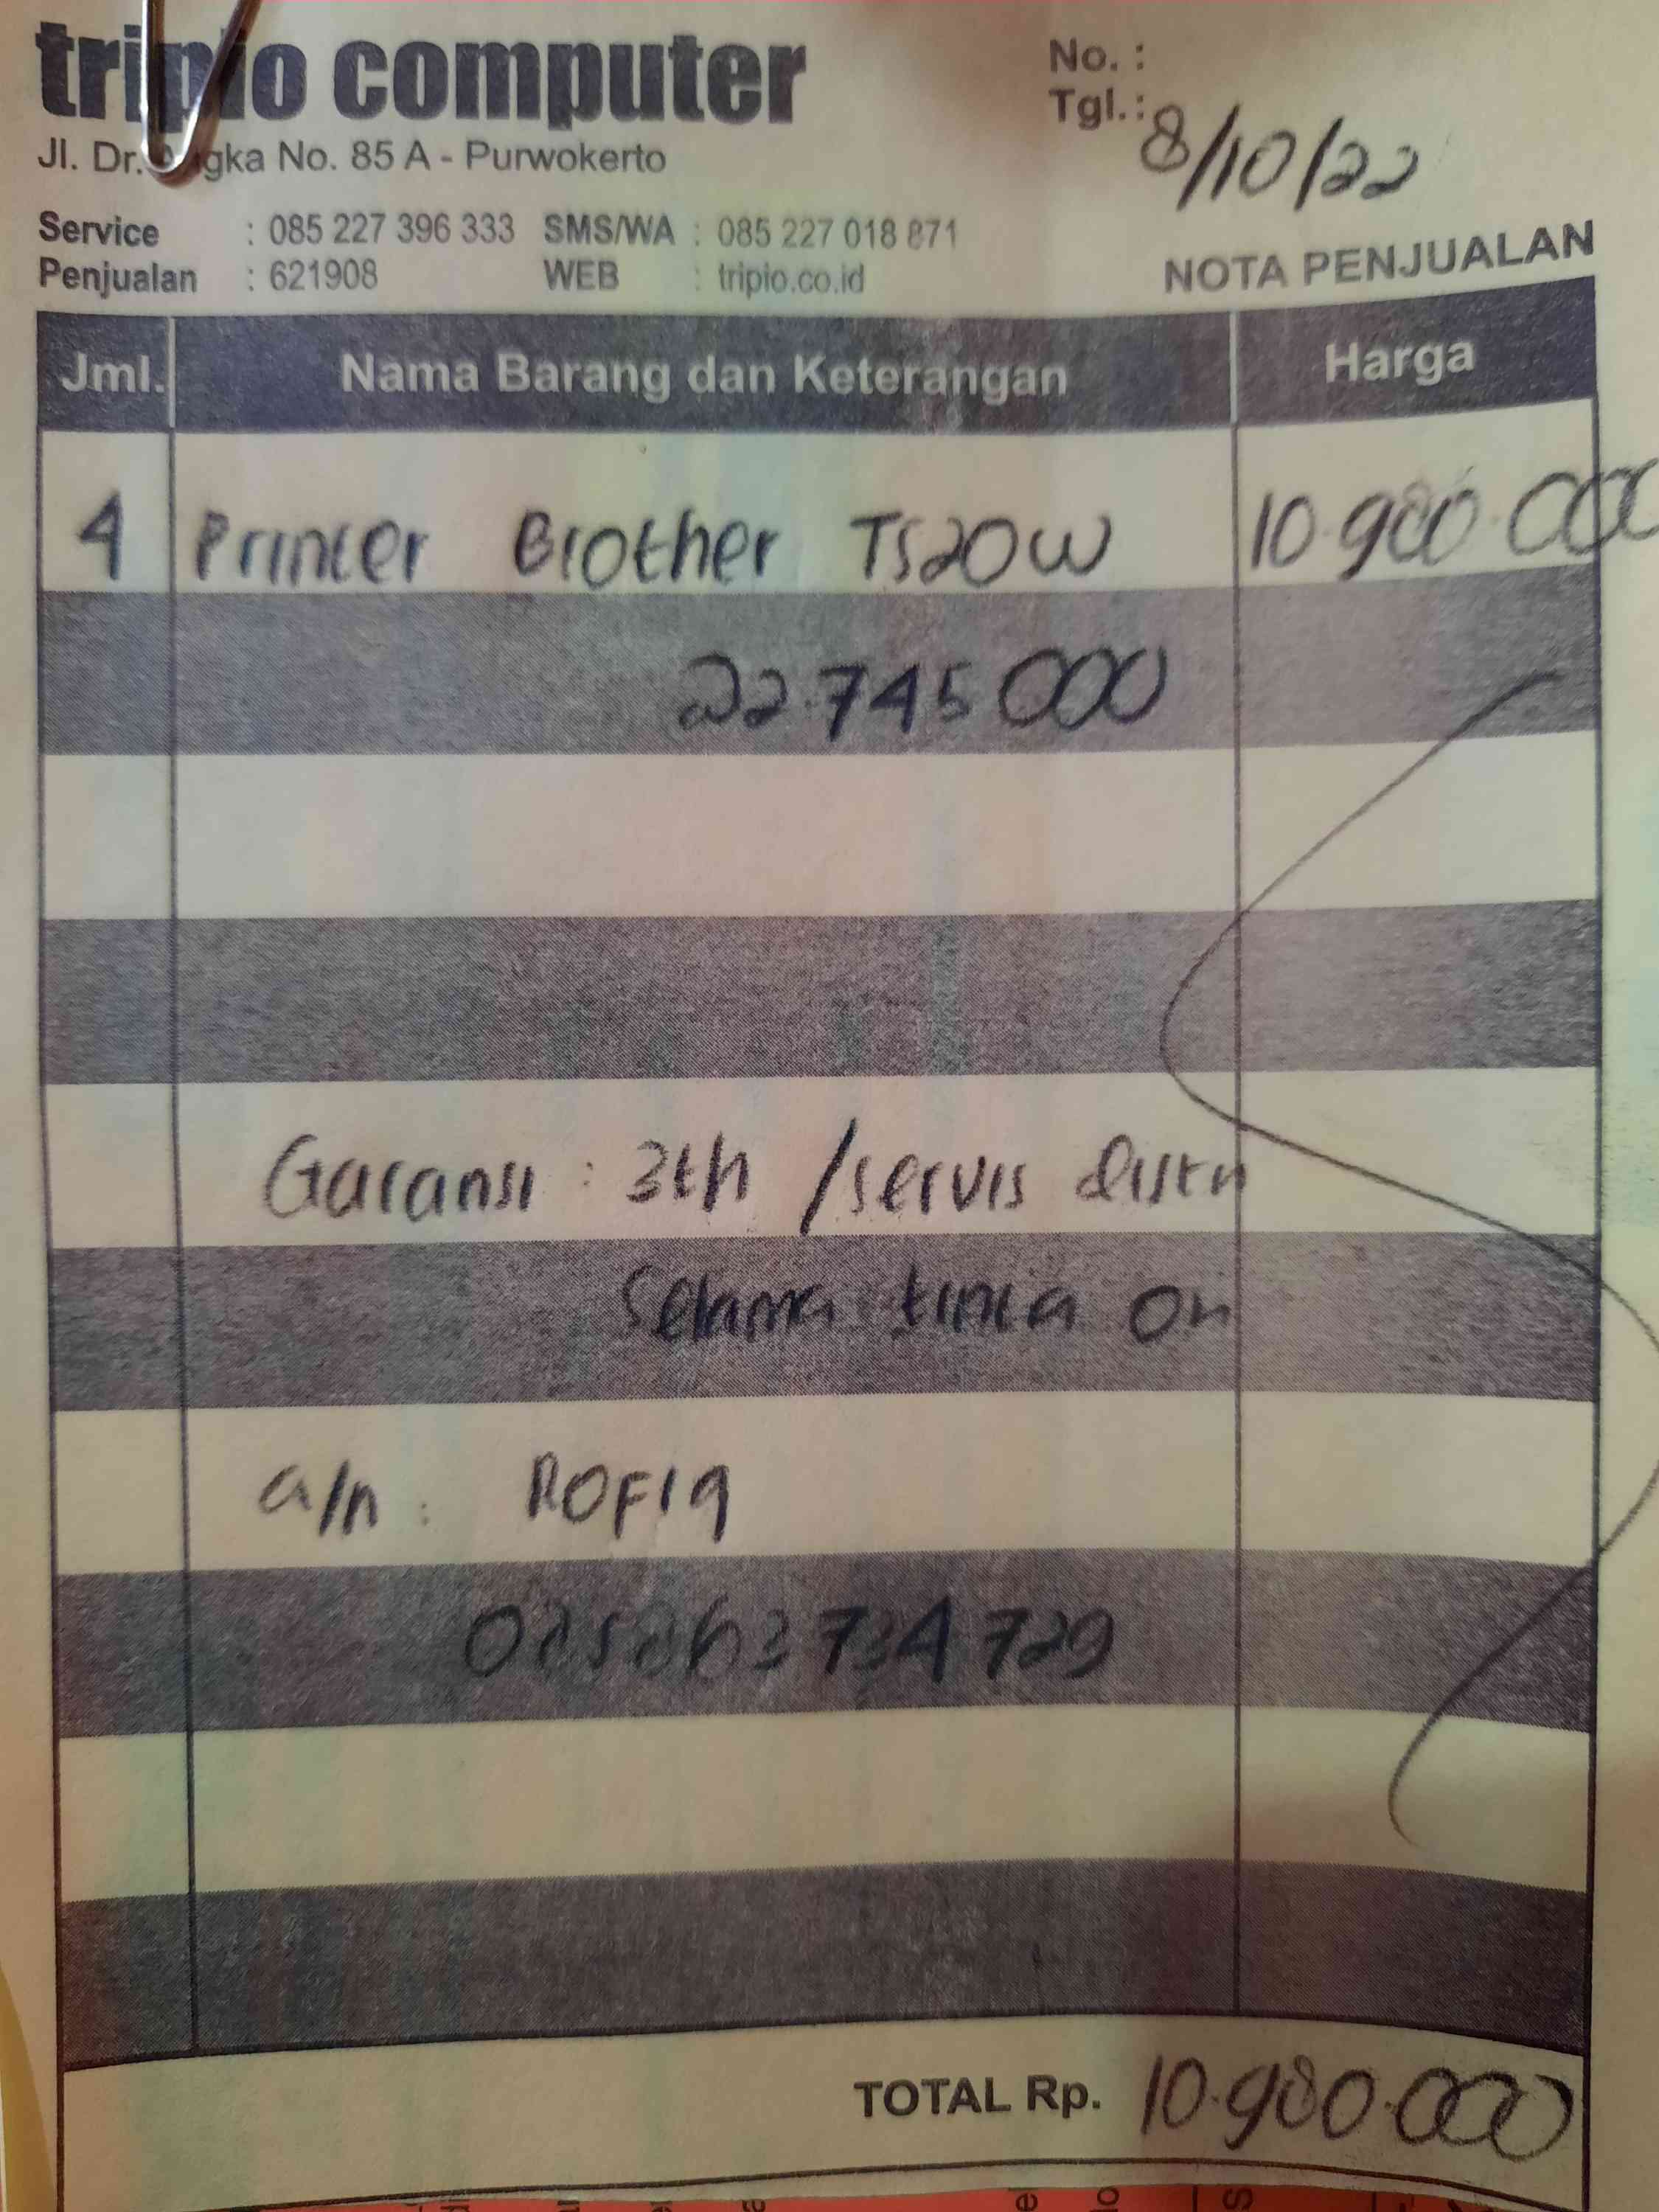 tripio computer
No. :
Tgl. : 8/10/22
Jl. Dr. No. 85 A - Purwokerto
Service : 085 227 396 333 SMS/WA : 085 227 018 871
Penjualan : 621908 WEB : tripio.co.id
NOTA PENJUALAN
Jml. Nama Barang dan Keterangan Harga
4 Printer Brother T520W 10.980.000
22.745 000
Garansi : 3th / servis distri
Selama tinta ori
a/n : ROFIQ
734 729
TOTAL Rp. 10.980.000